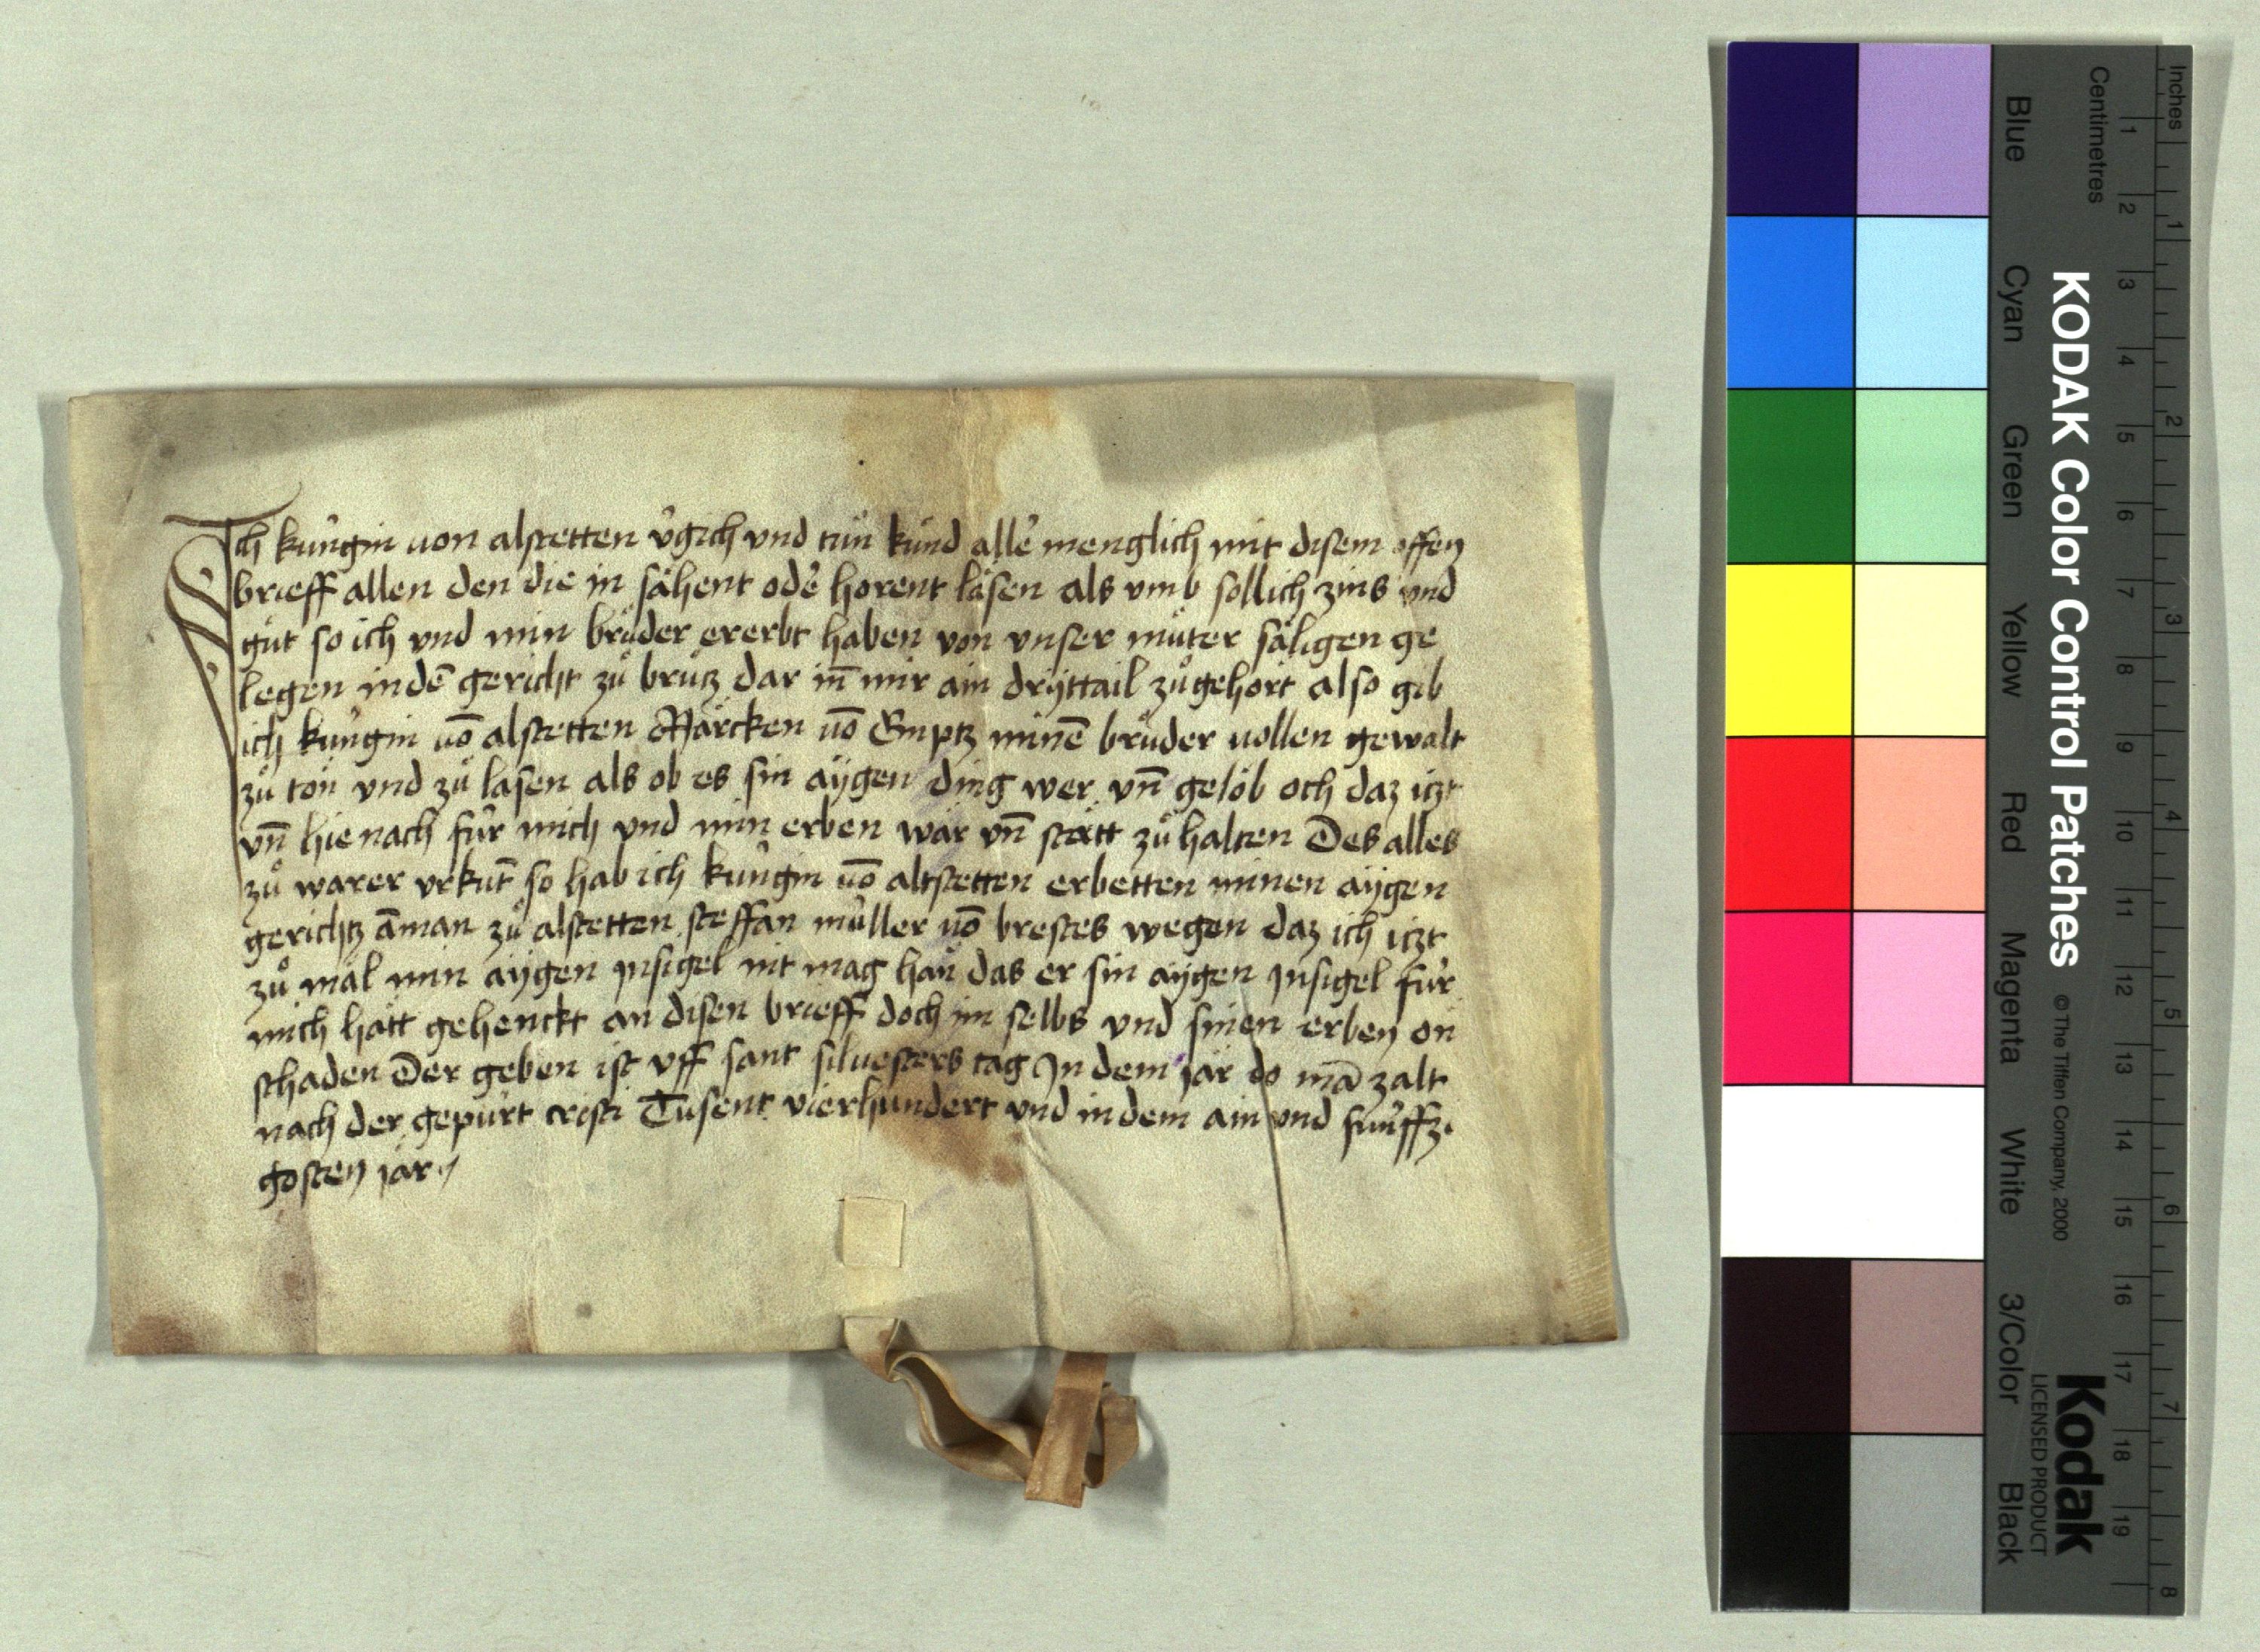 Ich kuͤngin von alstetten v̉gich vnd tuͤn kuͤnd alle᷑ menglich mit disem offen
brieff allen den die in saͤhent ode᷑ horent laͤsen als vmb sollich zins vnd
guͤt so ich vnd min bruͤder ererbt haben von vnser muͤter saͤligen ge
legen in dē gericht zuͦ bruͤtz dar in̄ mir ain drÿttail zuͦgehoͤrt also gib
ich kuͤngin vō alstetten Maͤrcken vō Emptz minē bruͤder vollen gewalt
zuͦ toͤn vnd zuͦ lasen als ob es sin aÿgen ding wer vn̄ geloͤb och daz itzt
vn̄ hie nach fuͤr mich vnd min erben waͤr vn̄ staͤtt zuͦ halten Des alles
zuͦ warer vrkuͤt̄ so hab ich kuͤngin vō altstetten erbetten minen aÿgen
gerichtz āman zuͦ alstetten steffan muͤller vō brestes wegen daz ich itzt
zuͦ maͤl min aÿgen insigel nit mag haͤn das er sin aÿgen Insigel fuͤr
mich haͤtt gehenckt an disen brieff doch im selbs vnd sinen erben on
schaden Der geben ist vff sant siluesters tag In dem jaͤr do mā zalt
nach der gepuͤrt cristi Tusent vierhundert vnd in dem ain vnd fuͤnffzi
gosten jaͤr
Inches
Centimetres
1 2 3 4 5 6 7 8
1 2 3 4 5 6 7 8 9 10 11 12 13 14 15 16 17 18 19
KODAK Color Control Patches © The Tiffen Company, 2000
Kodak
LICENSED PRODUCT
Blue Cyan Green Yellow Red Magenta White 3/Color Black